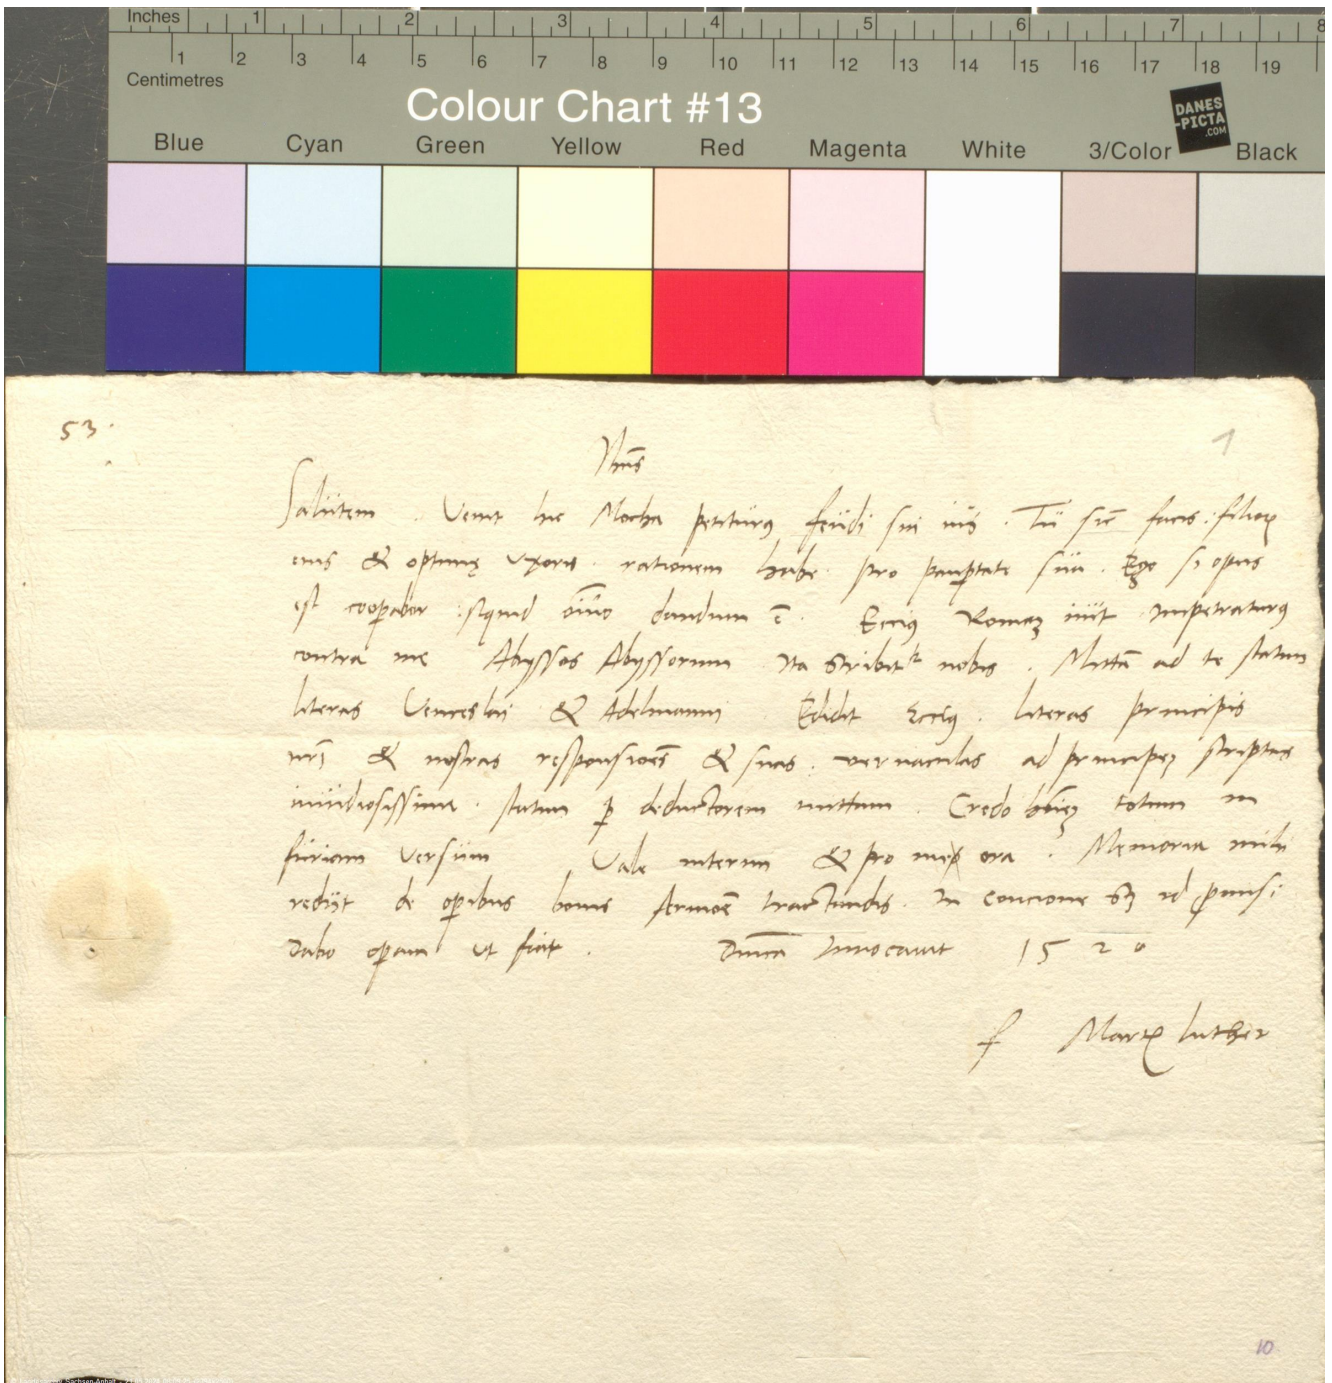 Inches 1 2 3 4 5 6 7 8
1 2 3 4 5 6 7 8 9 10 11 12 13 14 15 16 17 18 19
Centimetres
Colour Chart #13
DANES
-PICTA
.COM
Blue Cyan Green Yellow Red Magenta White 3/Color Black
53.
1
Ihūs
Salutem . Venit hic Mocha petiturꝰ feudi sui ius . Tu sic facis : filioꝝ
eius & optimę vxoris . rationem habe . pro paupertate sua . Ego si opus
est cooperabor : siquid oīno dandum ē . Ecciꝰ Romaꝫ iuit impetraturꝰ
contra me Abyssos Abyssorum Ita scribitᵘʳ nobis . Mittā ad te statim
literas Venceslai & Adelmanni . Edidit Ecciꝰ . literas principis
nrī & nostras responsiões & suas . vernaculas ad principeꝫ scriptas
inuidiosissima . statim ꝑ deductorem mittam . Credo hoīeꝫ totum in
furiam versum Vale interim & pro me ora . Memoria mihi
redijt de oꝑibus bonis sermoē tractandis . in concione sꝫ id ꝓmisi
Dabo oꝑam vt fiat . Dnica Inuocauit 1520
f Martꝰ Luther
10